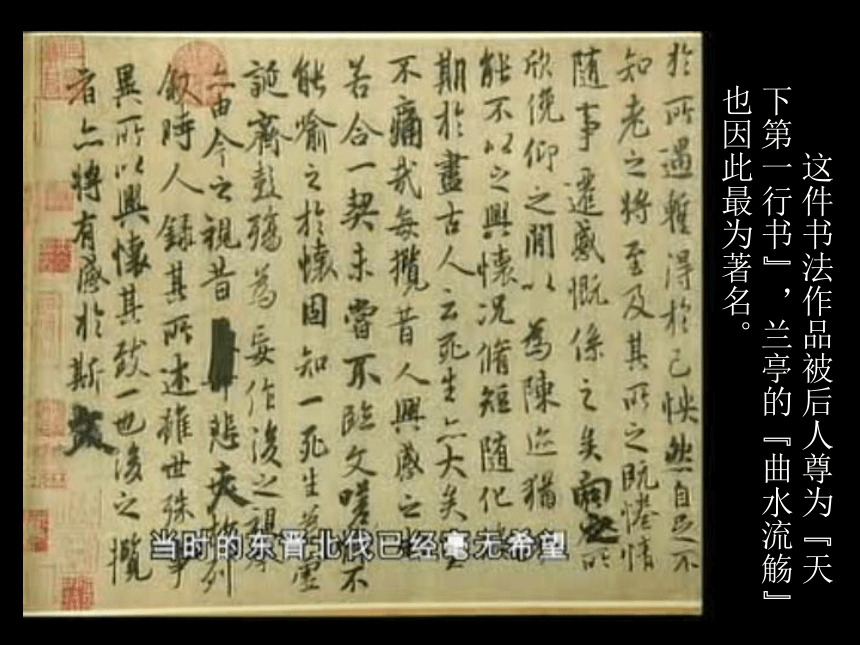 这件书法作品被后人尊为『天
下第一行书』，兰亭的『曲水流觞』
也因此最为著名。
於所遇蹔得於己怏然自足不
知老之將至及其所之既惓情
隨事遷感慨係之矣向之所
欣俛仰之閒以為陳迹猶
能不以之興懷況脩短隨化
期於盡古人云死生亦大矣
不痛哉每攬昔人興感之
若合一契未嘗不臨文嗟不
能喻之於懷固知一死生為虛
誕齊彭殤為妄作後之視
亦由今之視昔悲夫列
敘時人錄其所述雖世殊事
異所以興懷其致一也後之攬
者亦將有感於斯文
当时的东晋北伐已经毫无希望